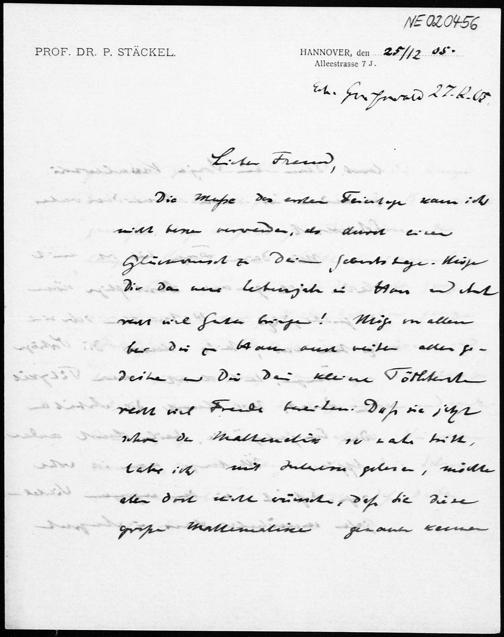 NE020456
PROF. DR. P. STÄCKEL.
HANNOVER, den 25/12 05.
Alleestrasse 7 J.
Greifswald 27.12.05
Lieber Freund,
Die Muße des ersten Feiertags kann ich
nicht besser verwenden, als durch einen
Glückwunsch zu Deinem Geburtstage. Möge
Dir das neue Lebensjahr in Haus und
recht viel Gutes bringen! Möge vor allem
bei Dir zu Haus auch weiter alles ge-
deihen und Dir Dein kleines Töchterchen
recht viel Freude bereiten. Daß sie jetzt
schon der Mathematik so nahe tritt,
habe ich mit Interesse gelesen, möchte
aber doch nicht wünschen, daß sie diese
große Mathematik genauer kennen